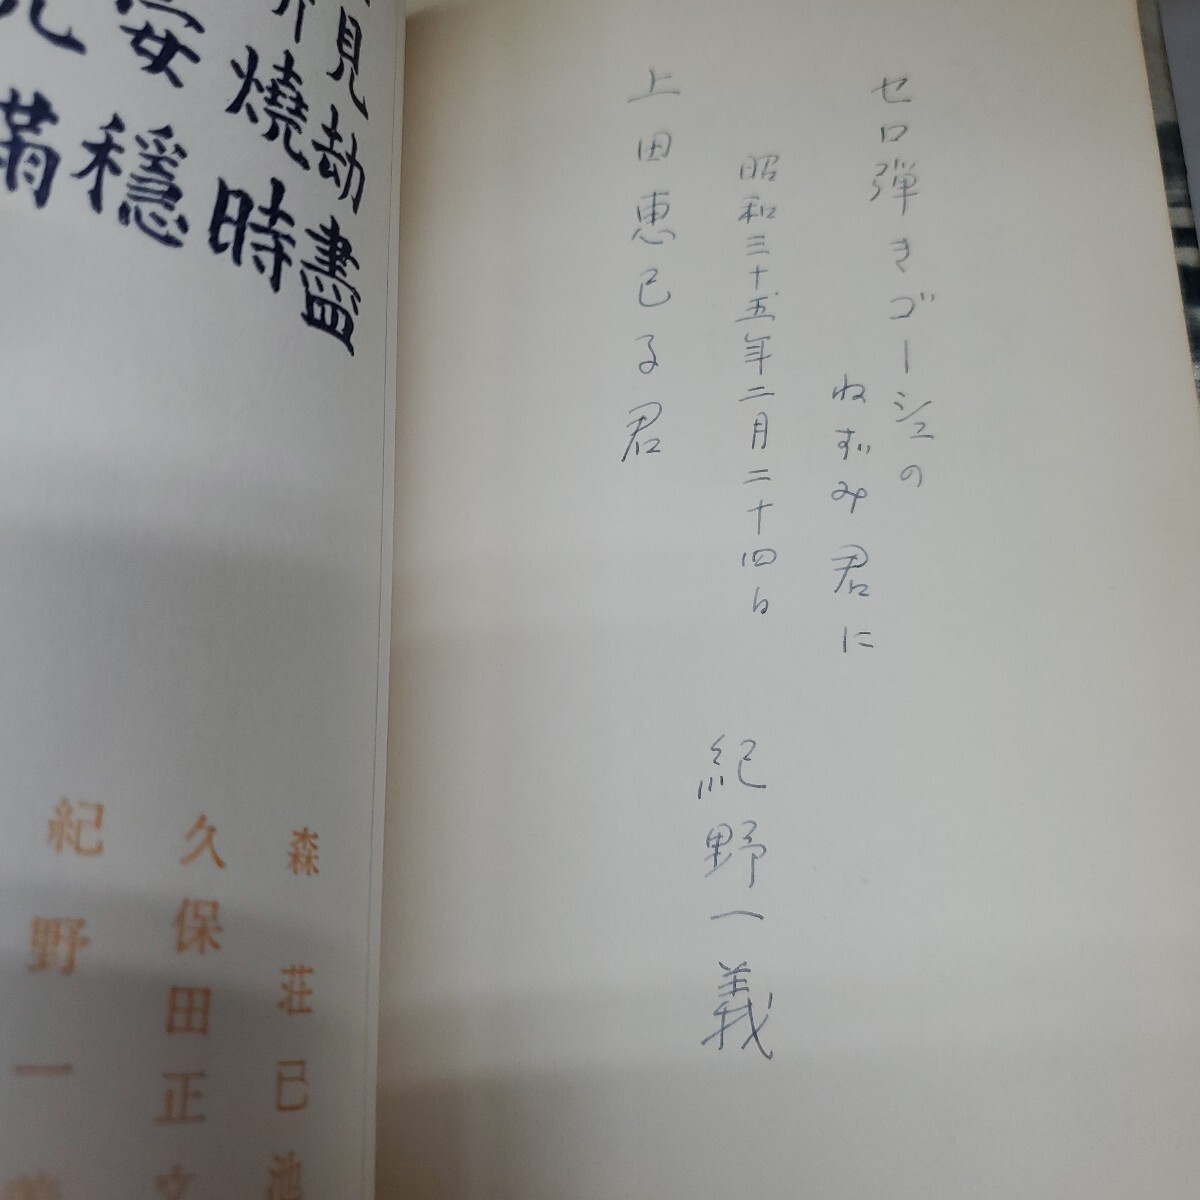 セロ弾きゴーシュの
ねずみ君に
昭和三十五年二月二十四日
紀野一義
上田恵巳子君
見劫盡
燒時
安穩
森荘已池
久保田正文
紀野一義